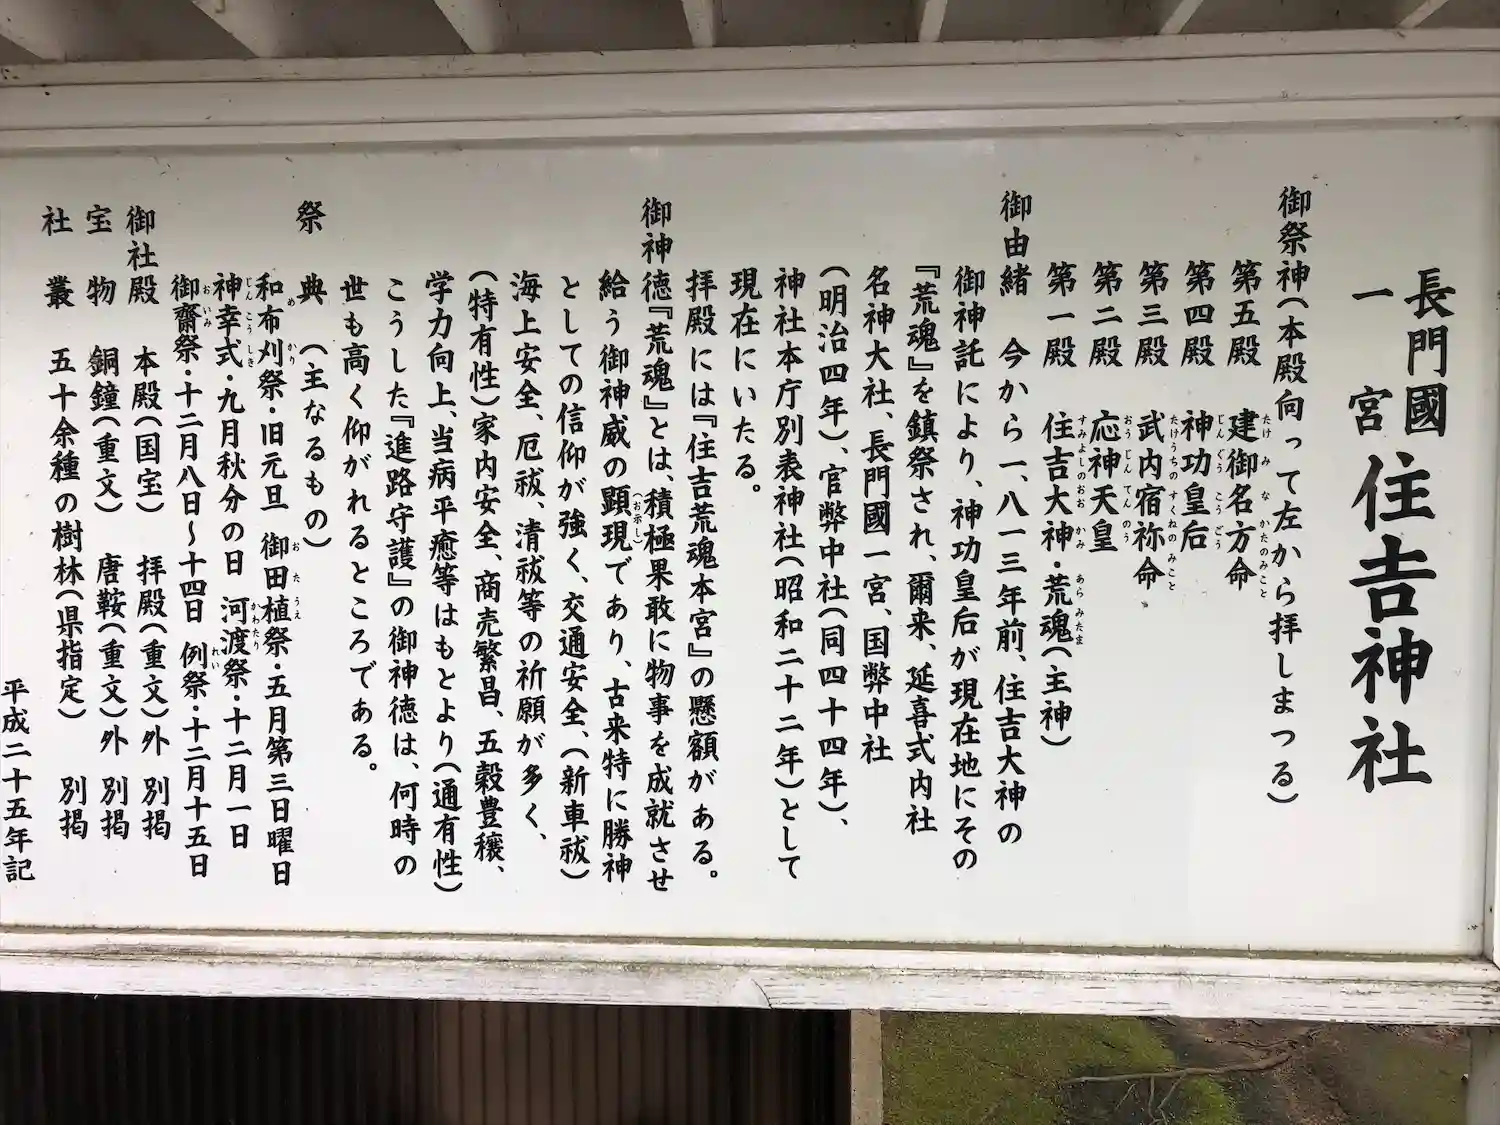 長門國
一宮 住吉神社
御祭神(本殿向って左から拝しまつる)
第五殿 建御名方命
たけ み な かたのみこと
第四殿 神功皇后
じんぐう こうごう
第三殿 武内宿祢命
たけうちの すくねの みこと
第二殿 応神天皇
おうじん てんのう
第一殿 住吉大神・荒魂(主神)
すみよしのおお かみ あら みたま
御由緒 今から一、八一三年前、住吉大神の
御神託により、神功皇后が現在地にその
『荒魂』を鎮祭され、爾来、延喜式内社
名神大社、長門國一宮、国弊中社
(明治四年)、官弊中社(同四十四年)、
神社本庁別表神社(昭和二十二年)として
現在にいたる。
拝殿には『住吉荒魂本宮』の懸額がある。
御神徳『荒魂』とは、積極果敢に物事を成就させ
給う御神威の顕現であり、古来特に勝神
(お示し)
としての信仰が強く、交通安全、(新車祓)
海上安全、厄祓、清祓等の祈願が多く、
(特有性)家内安全、商売繁昌、五穀豊穣、
学力向上、当病平癒等はもとより(通有性)
こうした『進路守護』の御神徳は、何時の
世も高く仰がれるところである。
祭典 (主なるもの)
和布刈祭・旧元旦 御田植祭・五月第三日曜日
め かり お た うえ
神幸式・九月秋分の日 河渡祭・十二月一日
じん こう しき かわたり
御齋祭・十二月八日〜十四日 例祭・十二月十五日
お いみ れい
御社殿 本殿(国宝) 拝殿(重文)外 別掲
宝物 銅鐘(重文) 唐鞍(重文)外 別掲
社叢 五十余種の樹林(県指定) 別掲
平成二十五年記